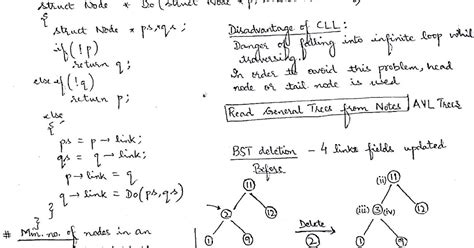 struct Node * Do(struct Node * p,
{
struct Node * ps, qs ;
if(!p)
return q;
else if(!q)
return p;
else
{
ps = p → link;
qs = q → link;
p → link = q
q → link = Do(ps,qs)
}
}
# Min. no. of nodes in an
Disadvantage of CLL :
Danger of falling into infinite loop whil
traversing.
In order to avoid this problem, head
node or tail node is used
Read General Trees from Notes | AVL Trees
BST deletion – 4 links fields updated
Before
11
2
12
1
9
Delete
2
(ii) 11
(iii) 3 (iv)
12
1
9